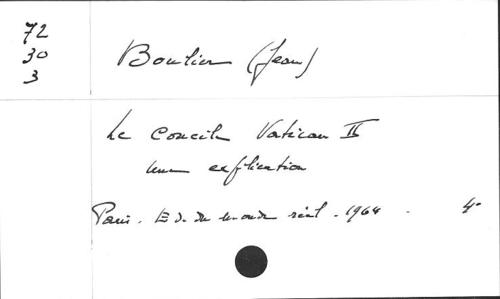 72
30
3
Boulier (Jean)
Le Concile Vatican II
une explication
Paris. Ed. du monde réel. 1964. 4°